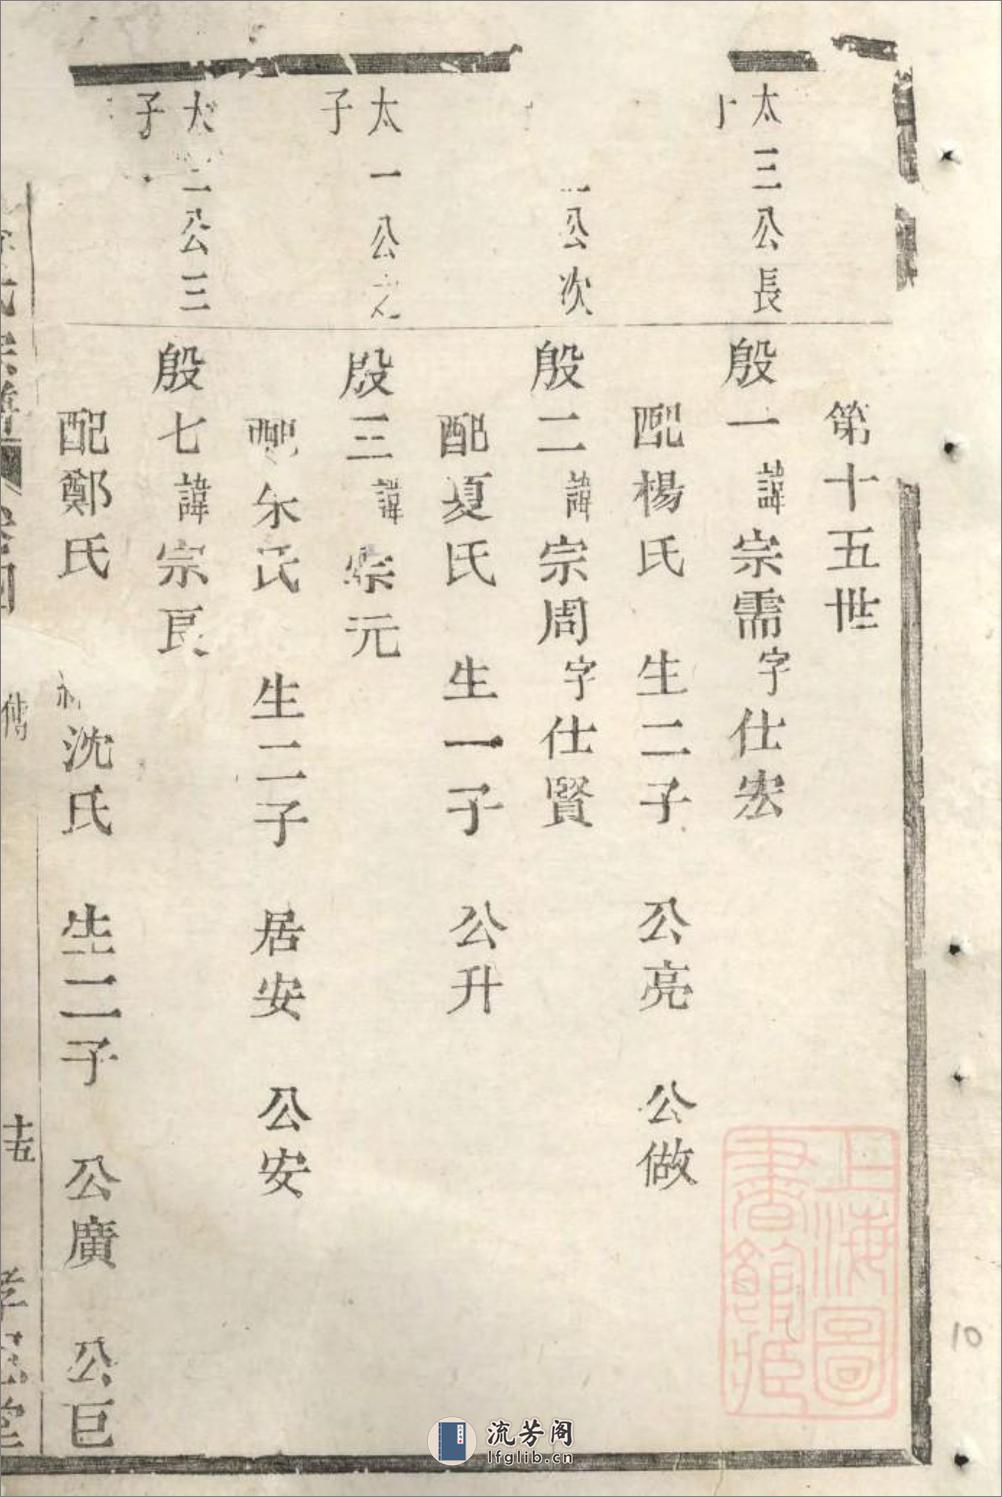 第十五世
太三公長
殷一諱宗需字仕宏
配楊氏 生二子 公亮 公做
公次
殷二諱宗周字仕賢
配夏氏 生一子 公升
太一公
子
殷三諱宗元
配朱氏 生二子 居安 公安
公三
子
殷七諱宗良
配鄭氏 沈氏 生二子 公廣 公巨
氏宗譜
十五
上海圖
書館藏
10
流芳阁
lfglib.cn